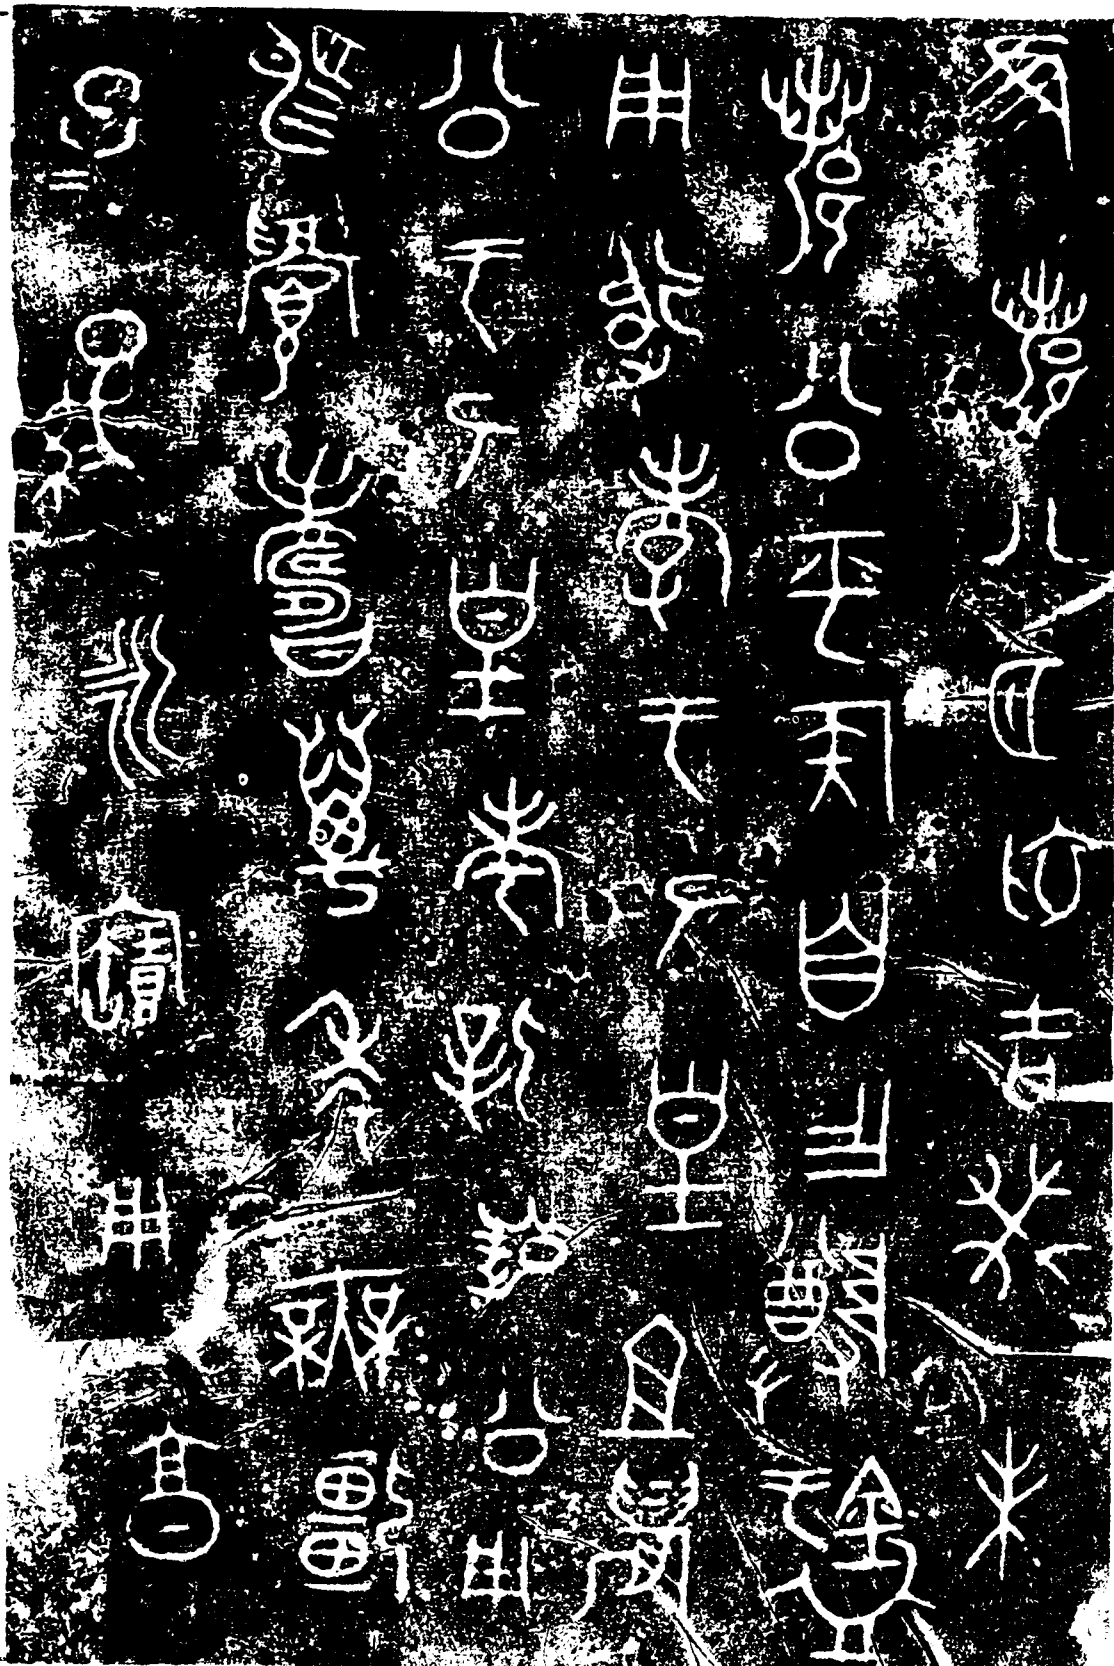 隹鄀八月初吉癸未
鄀公平侯自乍尊錳
用追孝于氒皇且晨
公于氒皇考屖公用
易眉壽萬年無疆
子=孫永寶用享